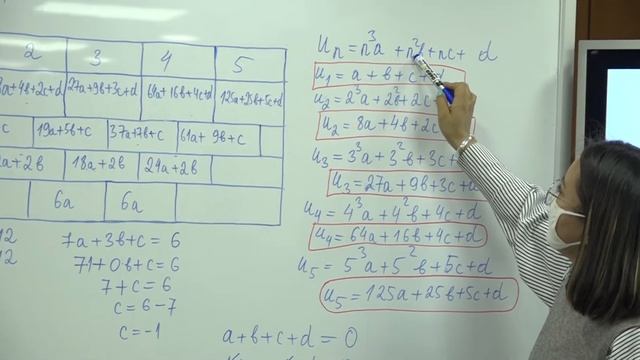 2 3 4 5
8a+4b+2c+d 27a+9b+3c+d 64a+16b+4c+d 125a+25b+5c+d
c 19a+5b+c 37a+7b+c 61a+9b+c
a+2b 18a+2b 24a+2b
6a 6a
12
12
7a+3b+c=6
71+0b+c=6
7+c=6
c=6-7
c=-1
a+b+c+d=0
Uₙ=n³a+n²b+nc+d
U₁=a+b+c+d
U₂=2³a+2²b+2c
U₂=8a+4b+2c
U₃=3³a+3²b+3c+
U₃=27a+9b+3c+d
U₄=4³a+4²b+4c+d
U₄=64a+16b+4c+d
U₅=5³a+5²b+5c+d
U₅=125a+25b+5c+d